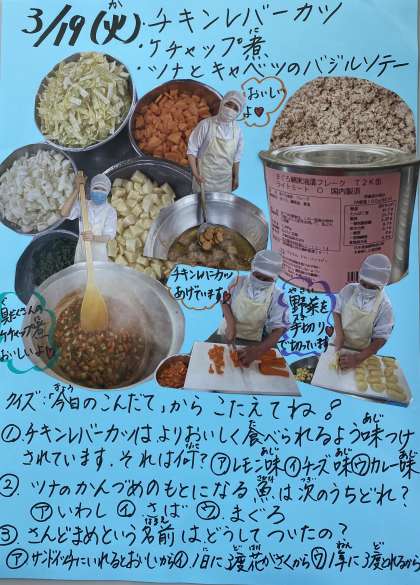 3/19(火)・チキンレバーカツ
・ケチャップ煮
・ツナとキャベツのバジルソテー
おいしいよ♥
まぐろ油漬フレーク T2K缶
ライトミート 国内製造
チキンレバーカツ
あげています♥
野菜を
手切り
で切っています
具だくさんの
ケチャップ煮
おいしいよ
クイズ:「今日のこんだて」からこたえてね!
①.チキンレバーカツは、よりおいしく食べられるよう味つけ
されています。それは何? ㋐レモン味 ㋑チーズ味 ㋒カレー味
②.ツナのかんづめのもとになる魚は次のうちどれ?
㋐いわし ㋑さば ㋒まぐろ
③.さんどまめという名前はどうしてついたの?
㋐サンドイッチにいれるとおいしいから ㋑1日に3度花がさくから ㋒1年に3度とれるから